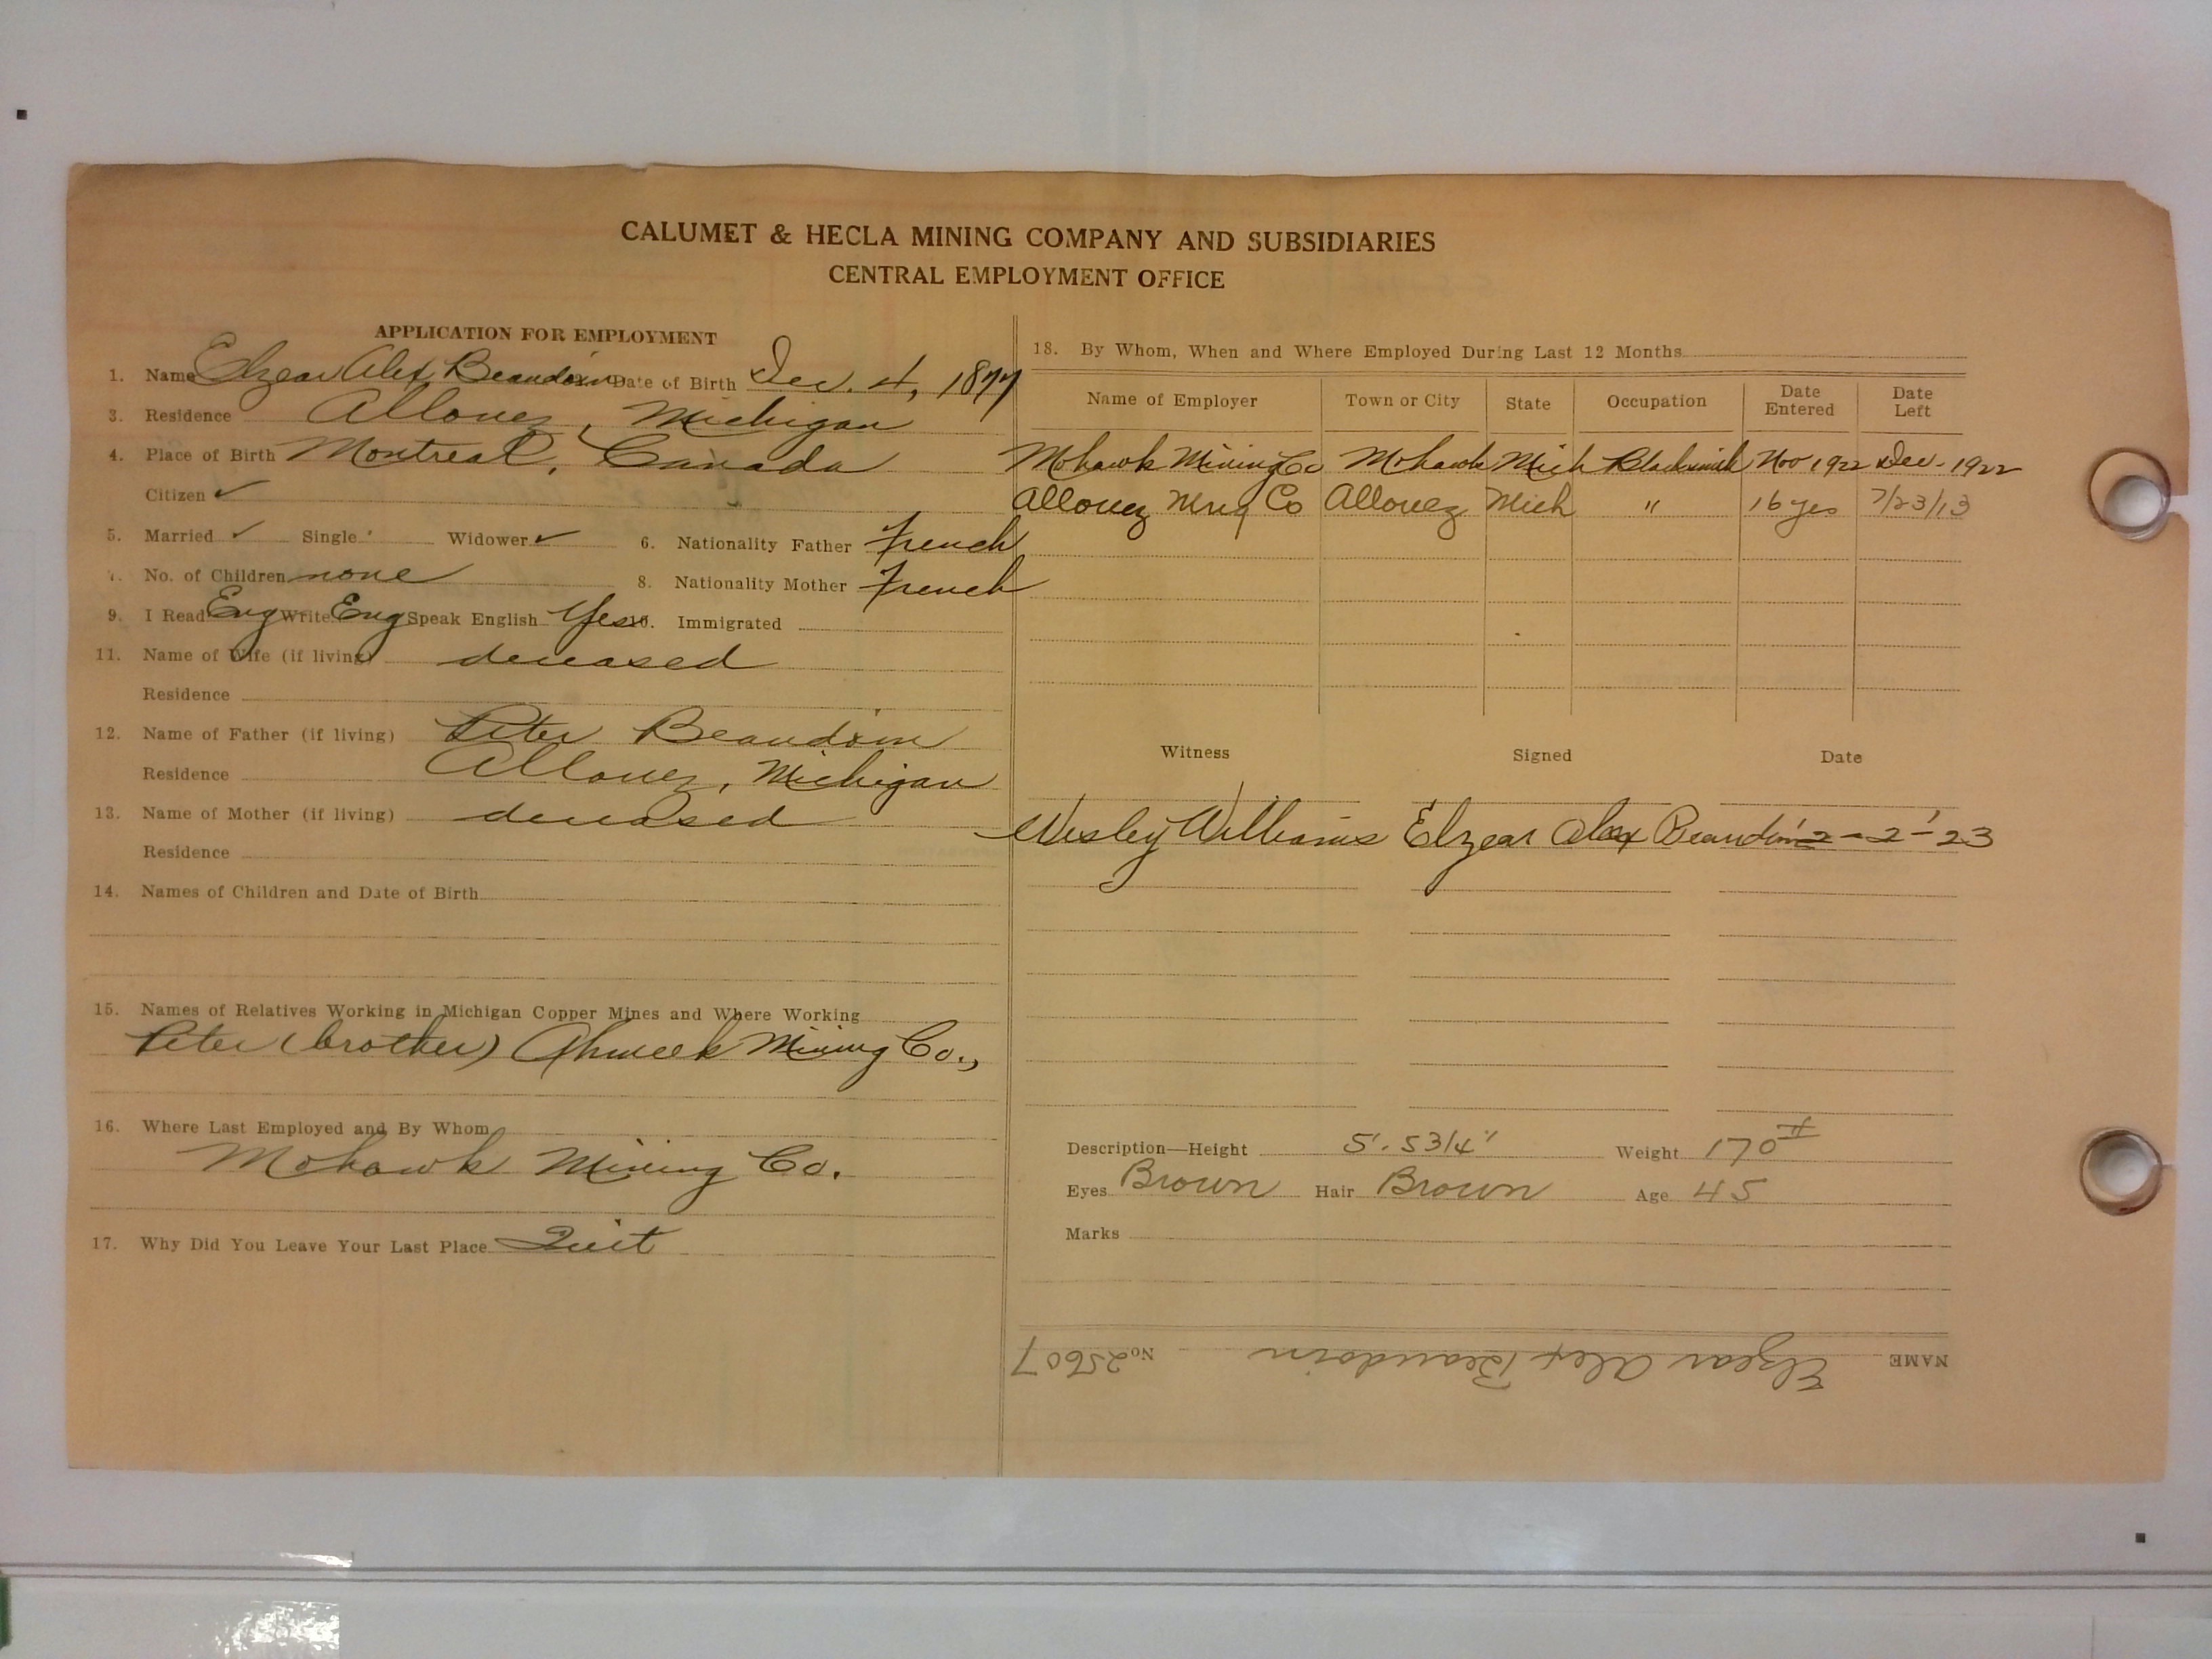 CALUMET & HECLA MINING COMPANY AND SUBSIDIARIES
CENTRAL EMPLOYMENT OFFICE
APPLICATION FOR EMPLOYMENT
1. Name Elzear Alex Beaudoin Date of Birth Dec. 4, 1877
3. Residence Allouez, Michigan
4. Place of Birth Montreal, Canada
Citizen ✓
5. Married ✓ Single Widower ✓ 6. Nationality Father French
7. No. of Children none 8. Nationality Mother French
9. I Read Eng Write Eng Speak English Yes 10. Immigrated
11. Name of Wife (if living) deceased
Residence
12. Name of Father (if living) Peter Beaudoin
Residence Allouez, Michigan
13. Name of Mother (if living) deceased
Residence
14. Names of Children and Date of Birth
15. Names of Relatives Working in Michigan Copper Mines and Where Working
Peter (brother) Ahmeek Mining Co.,
16. Where Last Employed and By Whom
Mohawk Mining Co.
17. Why Did You Leave Your Last Place Quit
18. By Whom, When and Where Employed During Last 12 Months
Name of Employer Town or City State Occupation Date Entered Date Left
Mohawk Mining Co Mohawk Mich Blacksmith Nov 1922 Dec - 1922
Allouez Mng Co Allouez Mich " 16 yrs 7/23/13
Witness Signed Date
Wesley Williams Elzear Alex Beaudoin 2-2-23
Description—Height 5'. 5 3/4" Weight 170 #
Eyes Brown Hair Brown Age 45
Marks
NAME Elzear Alex Beaudoin No. 25607